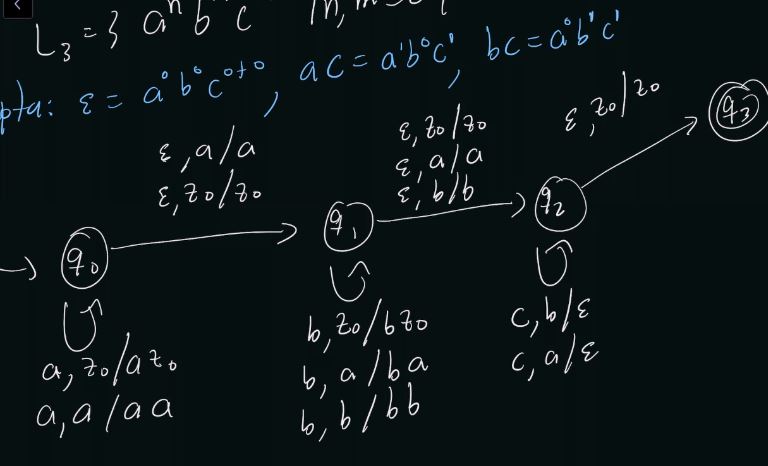 L₃ = { aⁿ b c
pta: ε = a⁰b⁰c⁰⁺⁰, ac = a¹b⁰c¹, bc = a⁰b¹c¹
ε, a/a
ε, z₀/z₀
ε, z₀/z₀
ε, a/a
ε, b/b
ε, z₀/z₀
q₀
q₁
q₂
q₃
a, z₀/az₀
a, a/aa
b, z₀/bz₀
b, a/ba
b, b/bb
c, b/ε
c, a/ε